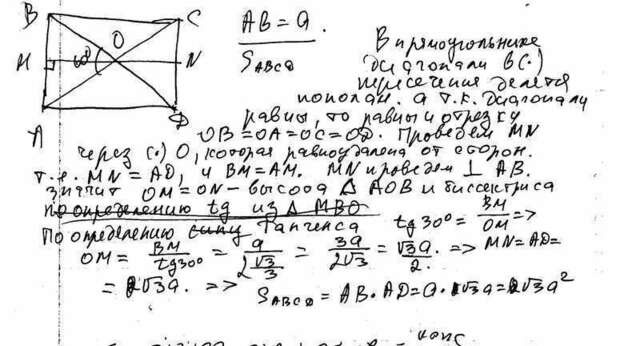 B C AB = a
O S ABCD В прямоугольнике
M 60° N диагонали в (·)
A D пересечения делятся
пополам. а т.к. диагонали
равны, то равны и отрезки
OB=OA=OC=OD. Проведем MN
через (·) O, которая равноудалена от сторон.
т.е. MN = AD, и BM=AM. MN проведем ⊥ AB.
значит OM=ON - высота △ AOB и биссектриса
по определению tg из △ MBO
По определению тангенса tg 30° = BM/OM =>
OM = BM/tg30° = a/(2 √3/3) = 3a/(2√3) = √3a/2. => MN=AD=
= √3a. => S ABCD = AB · AD = a · √3a = √3a²